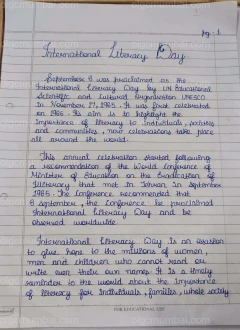 pg: 1
International Literacy Day
September 8 was proclaimed as the
International Literacy Day by UN Educational
Scientific and Cultural Organisation UNESCO
in November 17, 1965. It was first celebrated
on 1966. Its aim is to highlight the
importance of literacy to individuals, societies
and communities, now celebrations take place
all around the world.
This annual celebration started following
a recommendation of the World Conference of
Minister of Education on the Eradication of
Illiteracy that met in Tehran in September
1965. The Conference recommended that
8 september, the Conference be proclaimed
International Literacy Day and be
observed worldwide.
International Literacy Day is an occasion
to give hope to the millions of women,
men and children who cannot read or
write even their own names. It is a timely
reminder to the world about the importance
of literacy for individuals, families, whole society